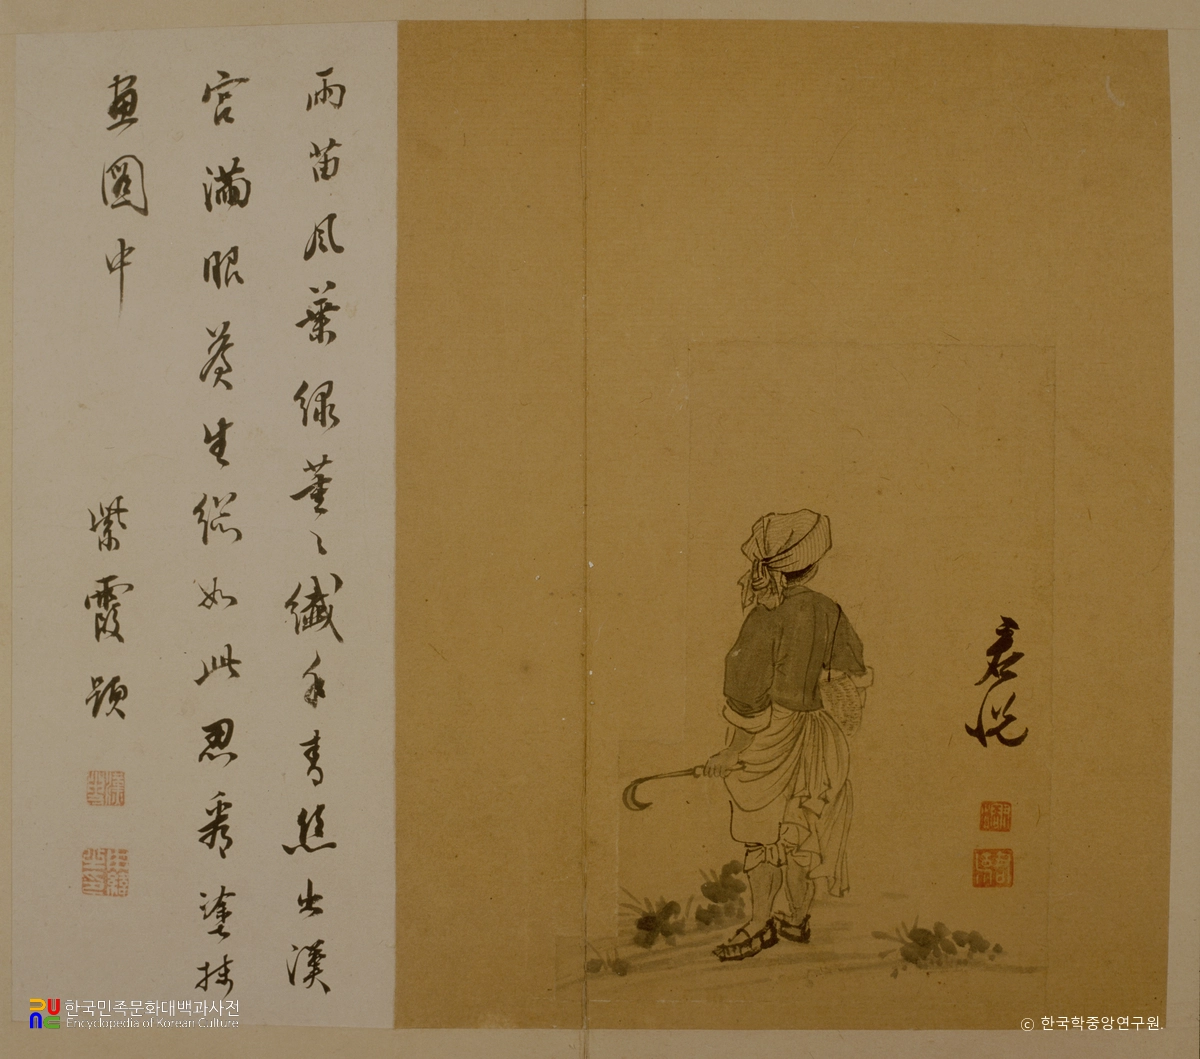 雨苗風葉綠纖手青絲出漢
宮滿眼蒼生總如此忍看塗抹
畫圖中
紫霞題
君悅
한국민족문화대백과사전
Encyclopedia of Korean Culture
ⓒ 한국학중앙연구원.